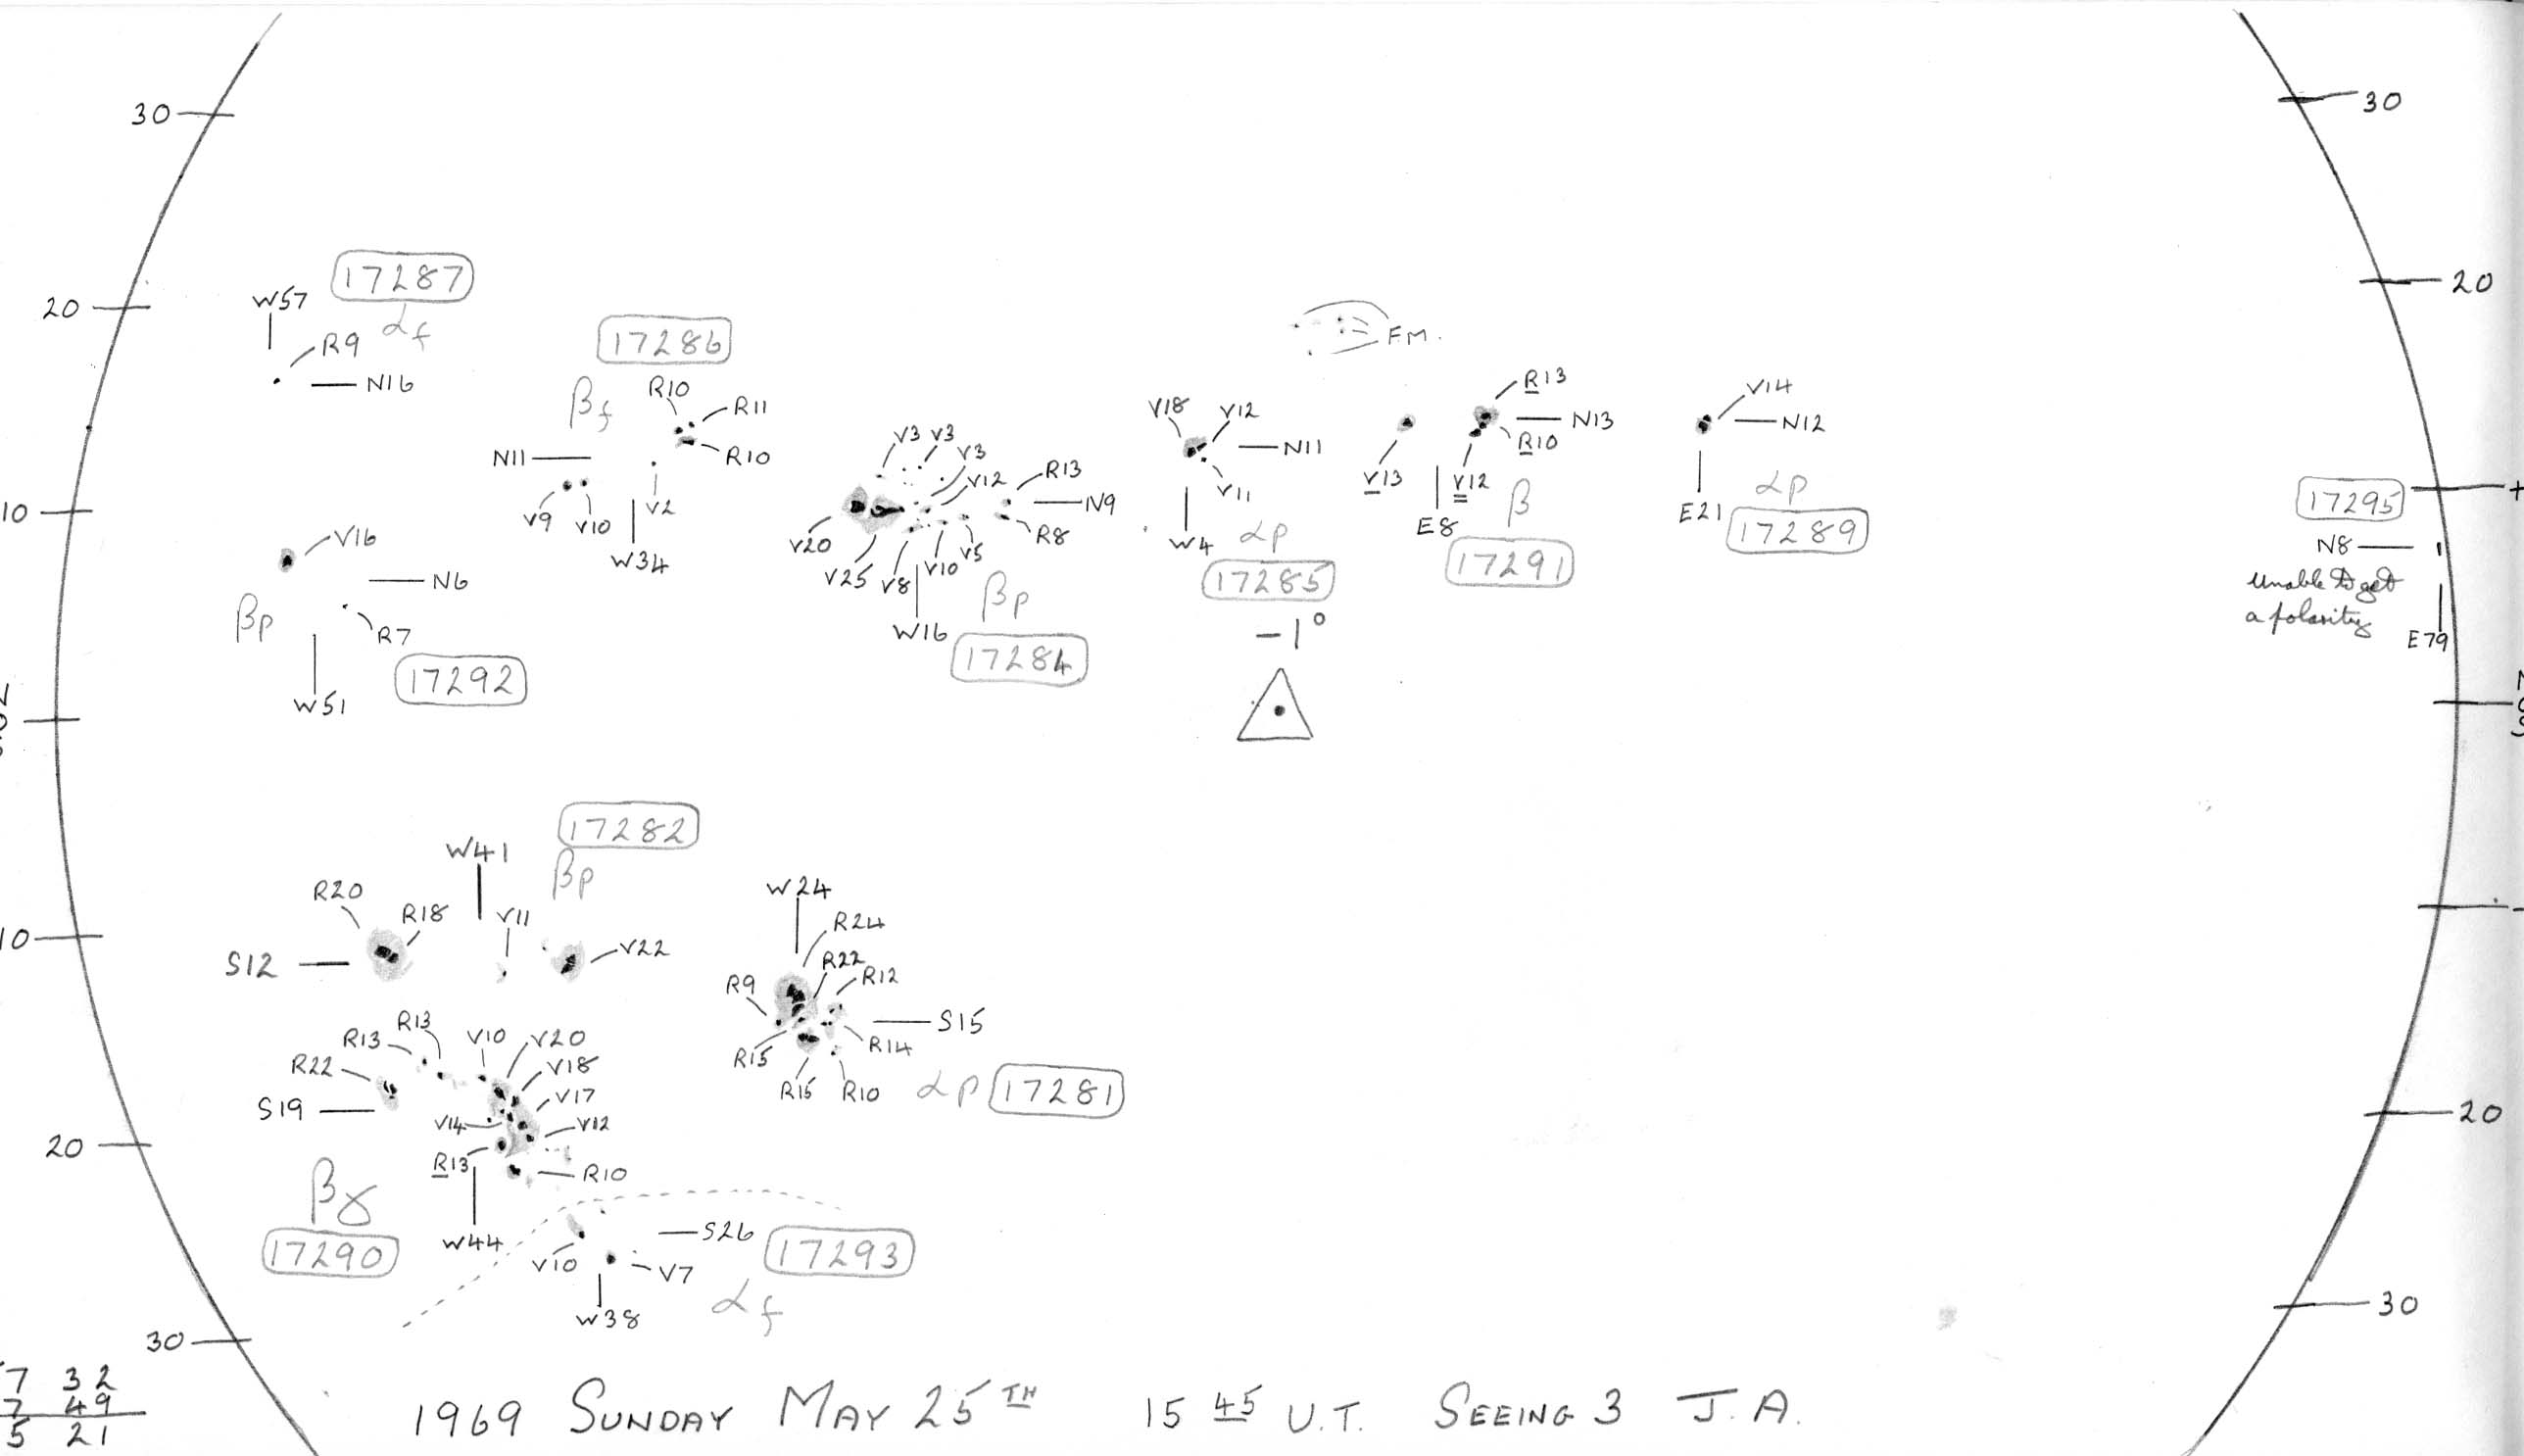 30
30
20
20
W57
17287
αf
R9
N16
17286
βf
R10
R11
R10
N11
V9
V10
V2
W34
10
V16
N6
βp
R7
17292
W51
V3
V3
V3
V12
R13
N9
R8
V20
V25
V8
V10
V5
W16
βp
17284
V18
V12
N11
V11
W4
αp
17285
-1°
FM.
R13
N13
R10
V13
V12
E8
β
17291
V14
N12
E21
αp
17289
17295
+
N8
Unable to get
a polarity
E79
17282
W41
βp
R20
R18
V11
V22
10
S12
W24
R24
R22
R12
R9
S15
R14
R15
R15
R10
αp
17281
R13
R13
V10
V20
R22
V18
V17
S19
V14
V12
20
20
R13
R10
βγ
17290
W44
S26
17293
V10
V7
αf
W38
30
30
7 32
7 49
5 21
1969 SUNDAY MAY 25TH 15 45 U.T. SEEING 3 J.A.